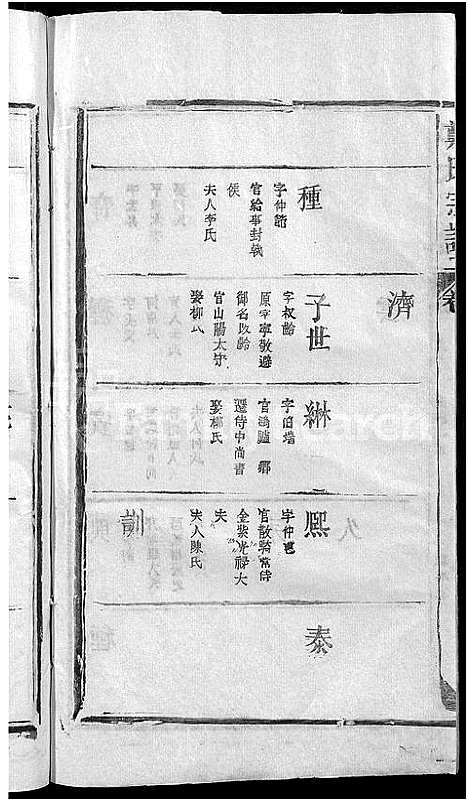 戴氏宗譜
卷
種
字仲篩
官給事封義
侯
夫人李氏
濟
子世
字叔齡
原字寧敬避
御名改齡
官山陽太守
娶柳氏
綝
字伯瑞
官鴻臚卿
遷侍中尚書
娶柳氏
熙
字仲邕
官散騎常侍
金紫光祿大
夫
夫人陳氏
訓
泰
久